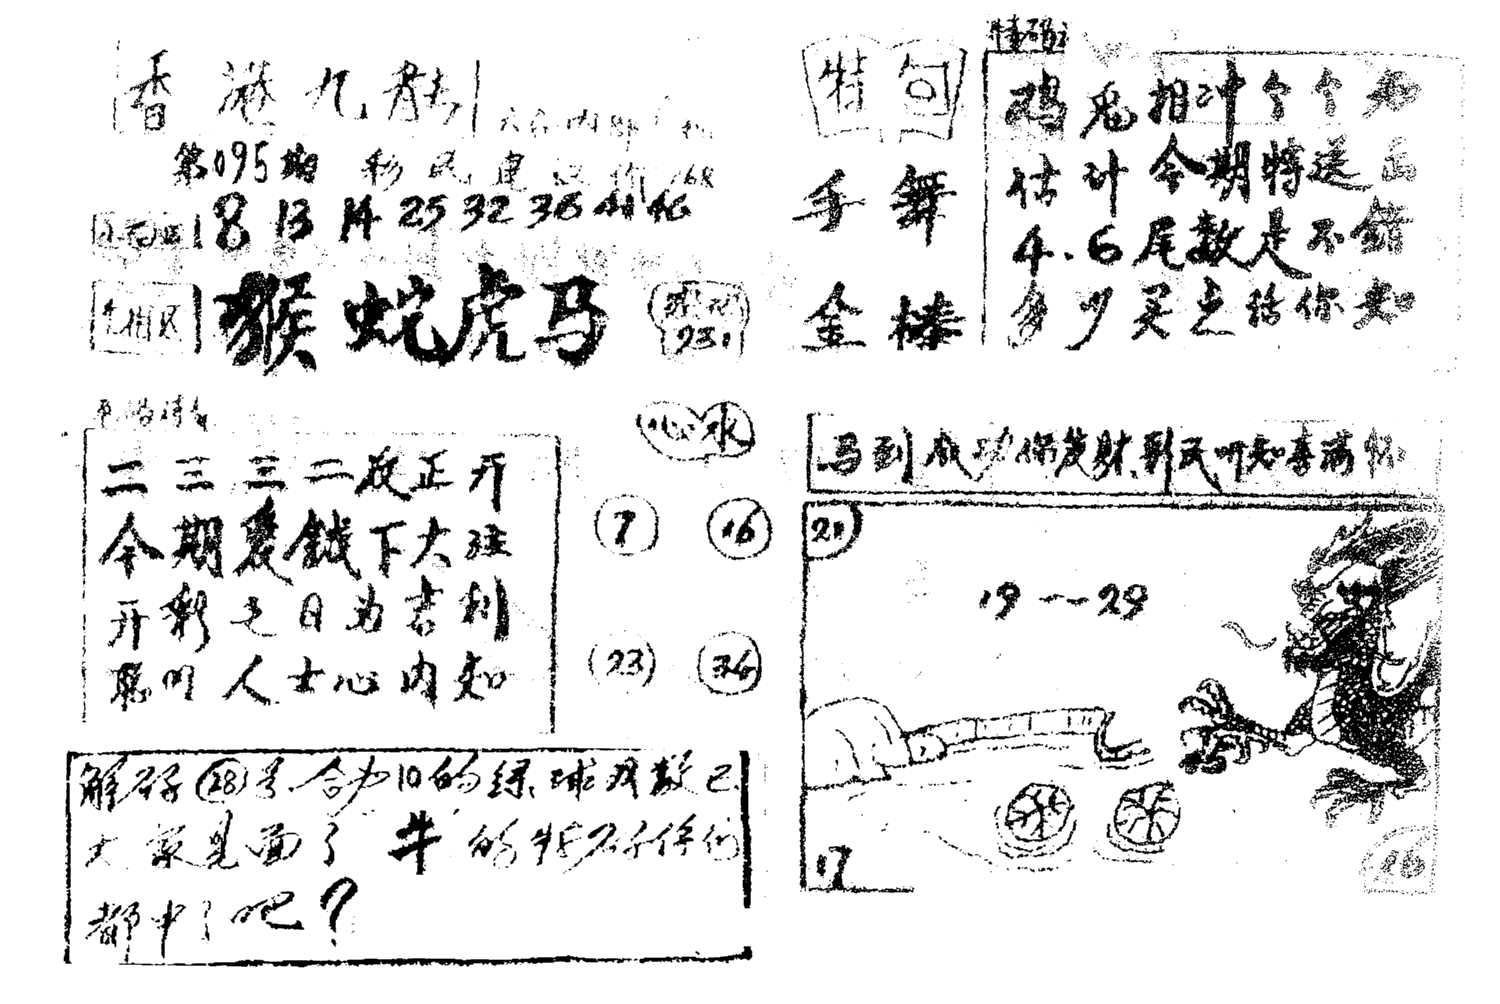 香港九龍
第095期 彩民
8 13 14 25 32 36 41 46
猴蛇虎马
23.
特句
手舞
金棒
特码
鸡兔相冲个个知
估计今期特送出
4.6尾数是不错
多少买之给你知
心水
7 16
23 36
二三三二放正开
今期要錢下大注
开彩之日为吉利
聪明人士心内知
马到成功保发财,彩民听知喜满怀
21
19--29
17
26
解碼(28)号.合为10的绿.球双数已
大家见面了 牛的
都中了吧?